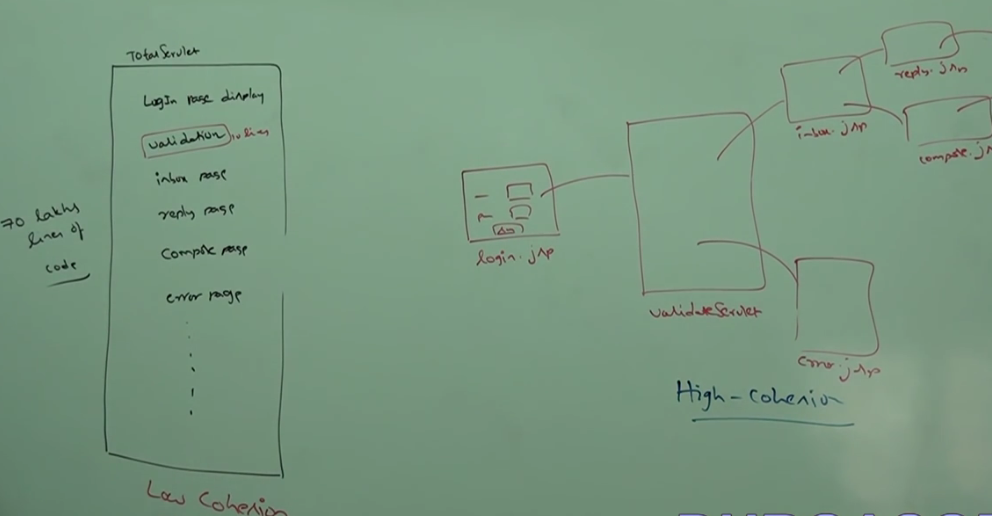 TotalServlet
LogIn page display
validation 10 lines
inbox page
reply page
compose page
error page
70 lakhs
lines of
code
Low Cohesion
login.jsp
validateServlet
inbox.jsp
reply.jsp
compose.js
error.jsp
High-cohesion